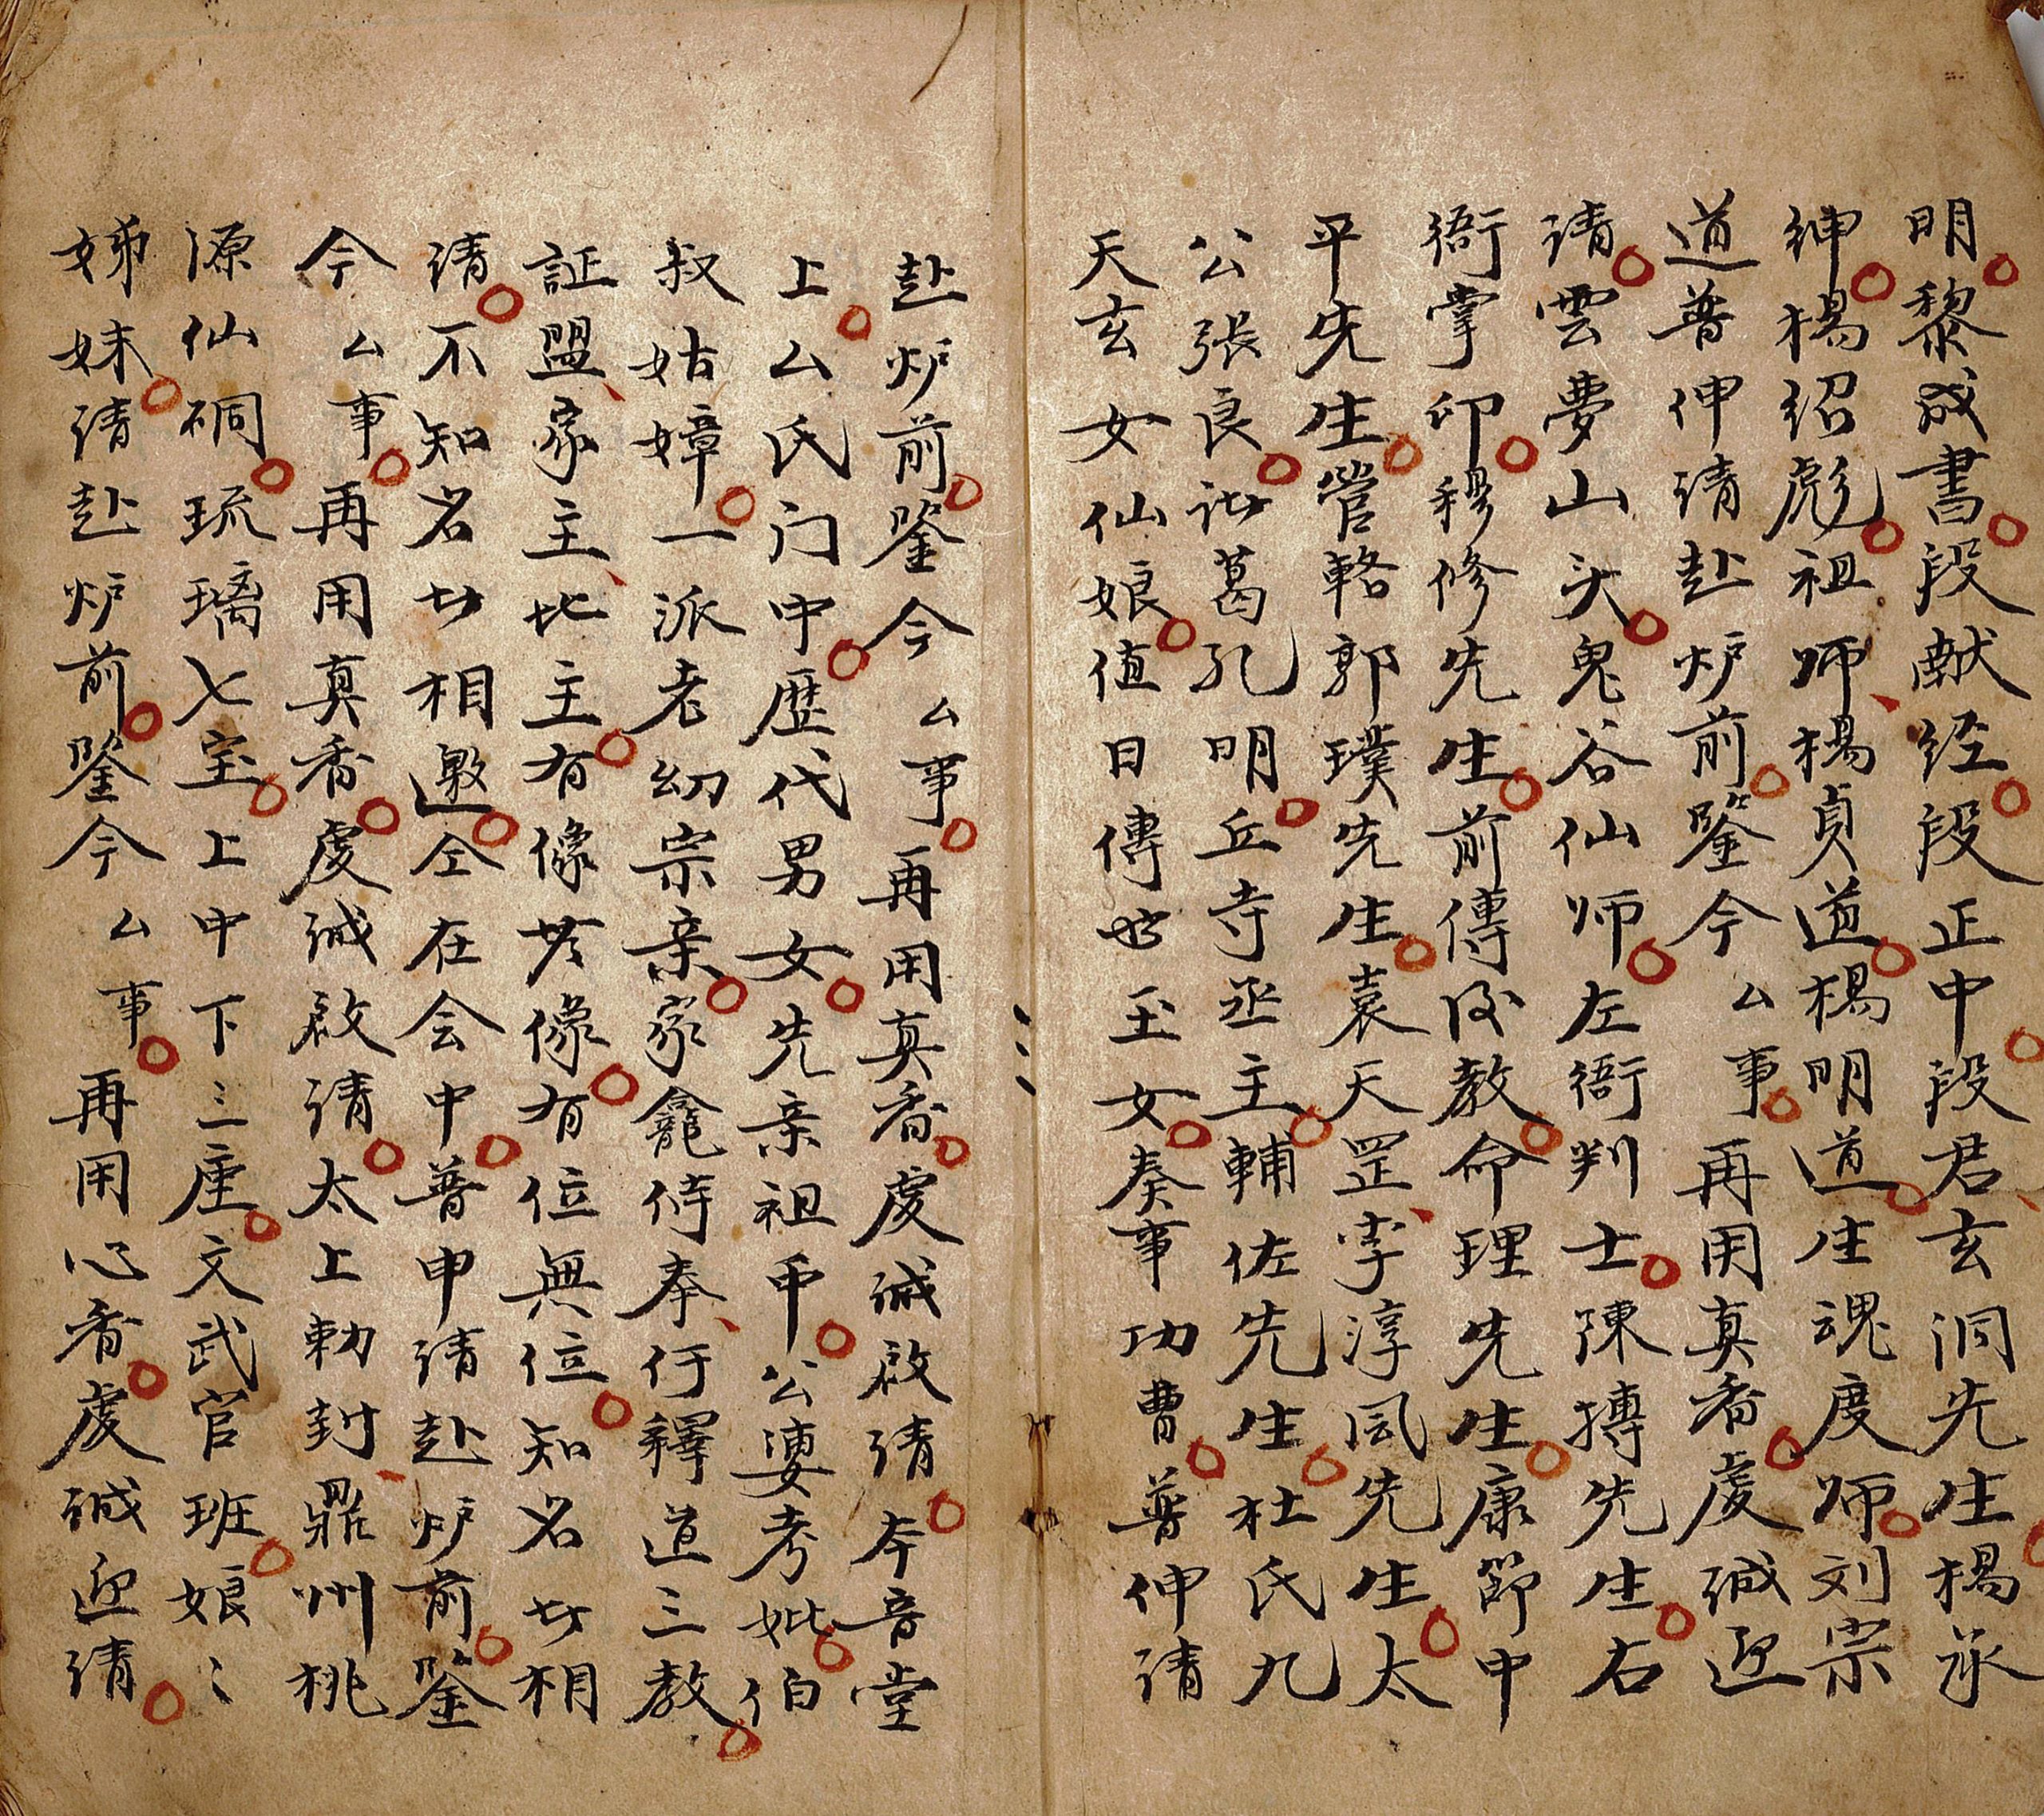 明黎成書段献经段正中段君玄洞先生楊承
紳楊绍彪祖师楊貞道楊明道生魂度师刘宗
道普伸请赴炉前鉴今厶事再用真香虔诚迎
请雲夢山头鬼谷仙师左衙判士陳摶先生右
衙掌印穆修先生前傳后教命理先生康節中
平先生管輅郭璞先生袁天罡李淳風先生太
公張良诸葛孔明丘寺丞主輔佐先生杜氏九
天玄女仙娘值日傳言玉女奏事功曹普伸请
赴炉前鉴今厶事再用真香虔诚啟请本音堂
上厶氏门中歷代男女先亲祖 公婆考妣伯
叔姑嫜一派老幼宗亲家龕侍奉行释道三教
証盟家主比主有像無像有位無位知名切相
请不知名切相邀仝在会中普申请赴炉前鉴
今厶事再用真香虔诚啟请太上勅封鼎州桃
源仙硐琉璃七宝上中下三座文武官班娘〻
姊妹请赴炉前鉴今厶事再用心香虔诚迎请